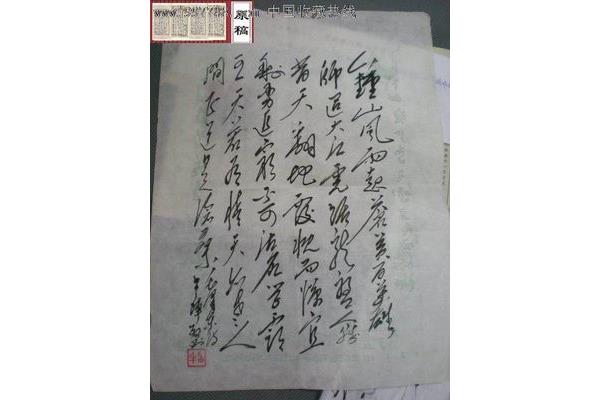 中国收藏热线
原稿
鐘山風雨起蒼黄百万雄
师过大江虎踞龙盘今胜
昔天翻地覆慨而慷宜
剩勇追窮可沽名学霸
王天若有情天亦老人
間正道是沧桑毛泽东诗